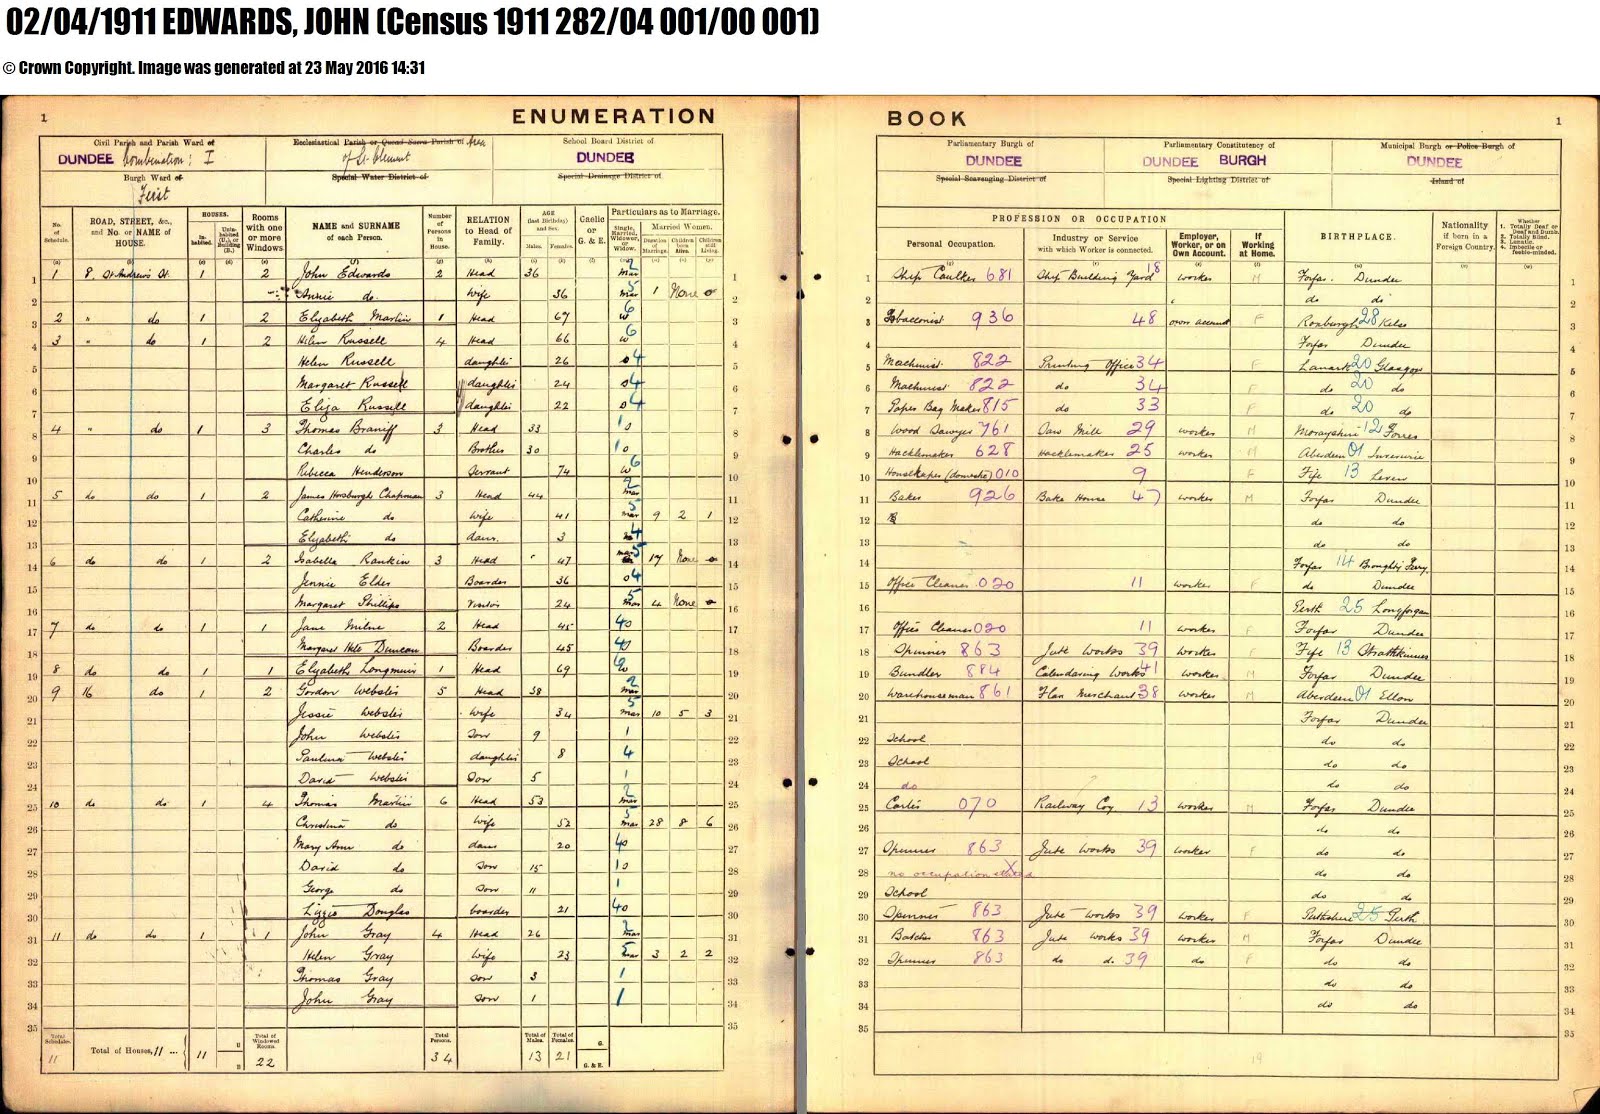 02/04/1911 EDWARDS, JOHN (Census 1911 282/04 001/00 001)
© Crown Copyright. Image was generated at 23 May 2016 14:31
1 ENUMERATION BOOK 1
Civil Parish and Parish Ward of
DUNDEE Combination: I
Burgh Ward of
First
Ecclesiastical Parish or Quoad Sacra Parish of Area
of St. Clement
Special Water District of
School Board District of
DUNDEE
Special Drainage District of
Parliamentary Burgh of
DUNDEE
Special Scavenging District of
Parliamentary Constituency of
DUNDEE BURGH
Special Lighting District of
Municipal Burgh or Police Burgh of
DUNDEE
Island of
No. of Schedule.
ROAD, STREET, &c., and No. or NAME of HOUSE.
HOUSES.
Inhabited.
Uninhabited (U.), or Building (B.)
Rooms with one or more Windows
NAME and SURNAME of each Person.
Number of Persons in House.
RELATION to Head of Family.
AGE (last Birthday) and Sex.
Males. Females.
Gaelic or G. & E.
Particulars as to Marriage.
Single, Married, Widower, or Widow.
Married Women.
Duration of Marriage. Children born Alive. Children still Living.
PROFESSION OR OCCUPATION
Personal Occupation.
Industry or Service with which Worker is connected.
Employer, Worker, or on Own Account.
If Working at Home.
BIRTHPLACE.
Nationality if born in a Foreign Country.
Whether
1. Totally Deaf or Deaf and Dumb.
2. Totally Blind.
3. Lunatic.
4. Imbecile or feeble-minded.
1 8, St Andrew's St. 1 2 John Edwards 2 Head 36 mar 2 1 Ship Caulker 681 Ship Building Yard 18 worker M Forfar Dundee 1
Annie do. Wife 36 mar 5 1 None 0 2 do do 2
2 " do 1 2 Elizabeth Martin 1 Head 67 w 6 3 Tobacconist 936 48 own account F Roxburgh 28 Kelso 3
3 " do 1 2 Helen Russell 4 Head 66 w 6 4 Forfar Dundee 4
Helen Russell daughter 26 o 4 5 Machinist 822 Printing Office 34 F Lanark 20 Glasgow 5
Margaret Russell daughter 24 o 4 6 Machinist 822 do 34 F do 20 do 6
Eliza Russell daughter 22 o 4 7 Paper Bag Maker 815 do 33 F do 20 do 7
4 " do 1 3 Thomas Braniff 3 Head 33 1 o 8 Wood Sawyer 761 Saw Mill 29 worker M Morayshire 12 Forres 8
Charles do Brother 30 1 o 9 Hacklemaker 628 Hacklemaker 25 worker M Aberdeen 01 Inverurie 9
Rebecca Henderson Servant 74 w 6 10 Housekeeper (domestic) 010 9 F Fife 13 Leven 10
5 do do 1 2 James Horsburgh Chapman 3 Head 44 mar 2 11 Baker 926 Bake House 47 worker M Forfar Dundee 11
Catherine do Wife 41 mar 5 9 2 1 12 do do 12
Elizabeth do daur. 3 4 13 do do 13
6 do do 1 2 Isabella Rankin 3 Head 47 mar 5 17 None 0 14 Forfar 14 Broughty Ferry 14
Jennie Elder Boarder 36 o 4 15 Office Cleaner 020 11 worker F do Dundee 15
Margaret Phillips Visitor 24 mar 5 4 None 0 16 Perth 25 Longforgan 16
7 do do 1 1 Jane Milne 2 Head 45 4 o 17 Office Cleaner 020 11 worker F Forfar Dundee 17
Margaret Duncan Boarder 45 4 o 18 Spinner 863 Jute Works 39 worker F Fife 13 Strathkinness 18
8 do do 1 1 Elizabeth Longmuir 1 Head 69 6 w 19 Bundler 884 Calendaring Works 41 worker Forfar Dundee 19
9 16 do 1 2 Gordon Webster 5 Head 38 mar 2 20 Warehouseman 861 Flax Merchant 38 worker M Aberdeen 01 Ellon 20
Jessie Webster Wife 34 mar 5 10 5 3 21 Forfar Dundee 21
John Webster Son 9 1 22 School do do 22
Paulina Webster daughter 8 4 23 School do do 23
David Webster Son 5 1 24 do do do 24
10 do do 1 4 Thomas Martin 6 Head 53 mar 2 25 Carter 070 Railway Coy 13 worker M Forfar Dundee 25
Christina do Wife 52 mar 5 28 8 6 26 do do 26
Mary Ann do daur 20 4 o 27 Spinner 863 Jute Works 39 worker F do do 27
David do son 15 1 o 28 no occupation stated do do 28
George do son 11 1 29 School do do 29
Lizzie Douglas boarder 21 4 o 30 Spinner 863 Jute Works 39 worker F Perthshire 25 Perth 30
11 do do 1 1 John Gray 4 Head 26 mar 2 31 Batcher 863 Jute works 39 worker M Forfar Dundee 31
Helen Gray Wife 23 mar 5 3 2 2 32 Spinner 863 do do 39 do F do do 32
Thomas Gray son 3 1 33 do do 33
John Gray son 1 1 34 do do 34
35 35 35 35
Total Schedule. 11
Total of Houses, 11 ... 11 U B
Total of Windowed Rooms. 22
Total Persons. 34
Total of Males. 13
Total of Females. 21
G.
G. & E.
19